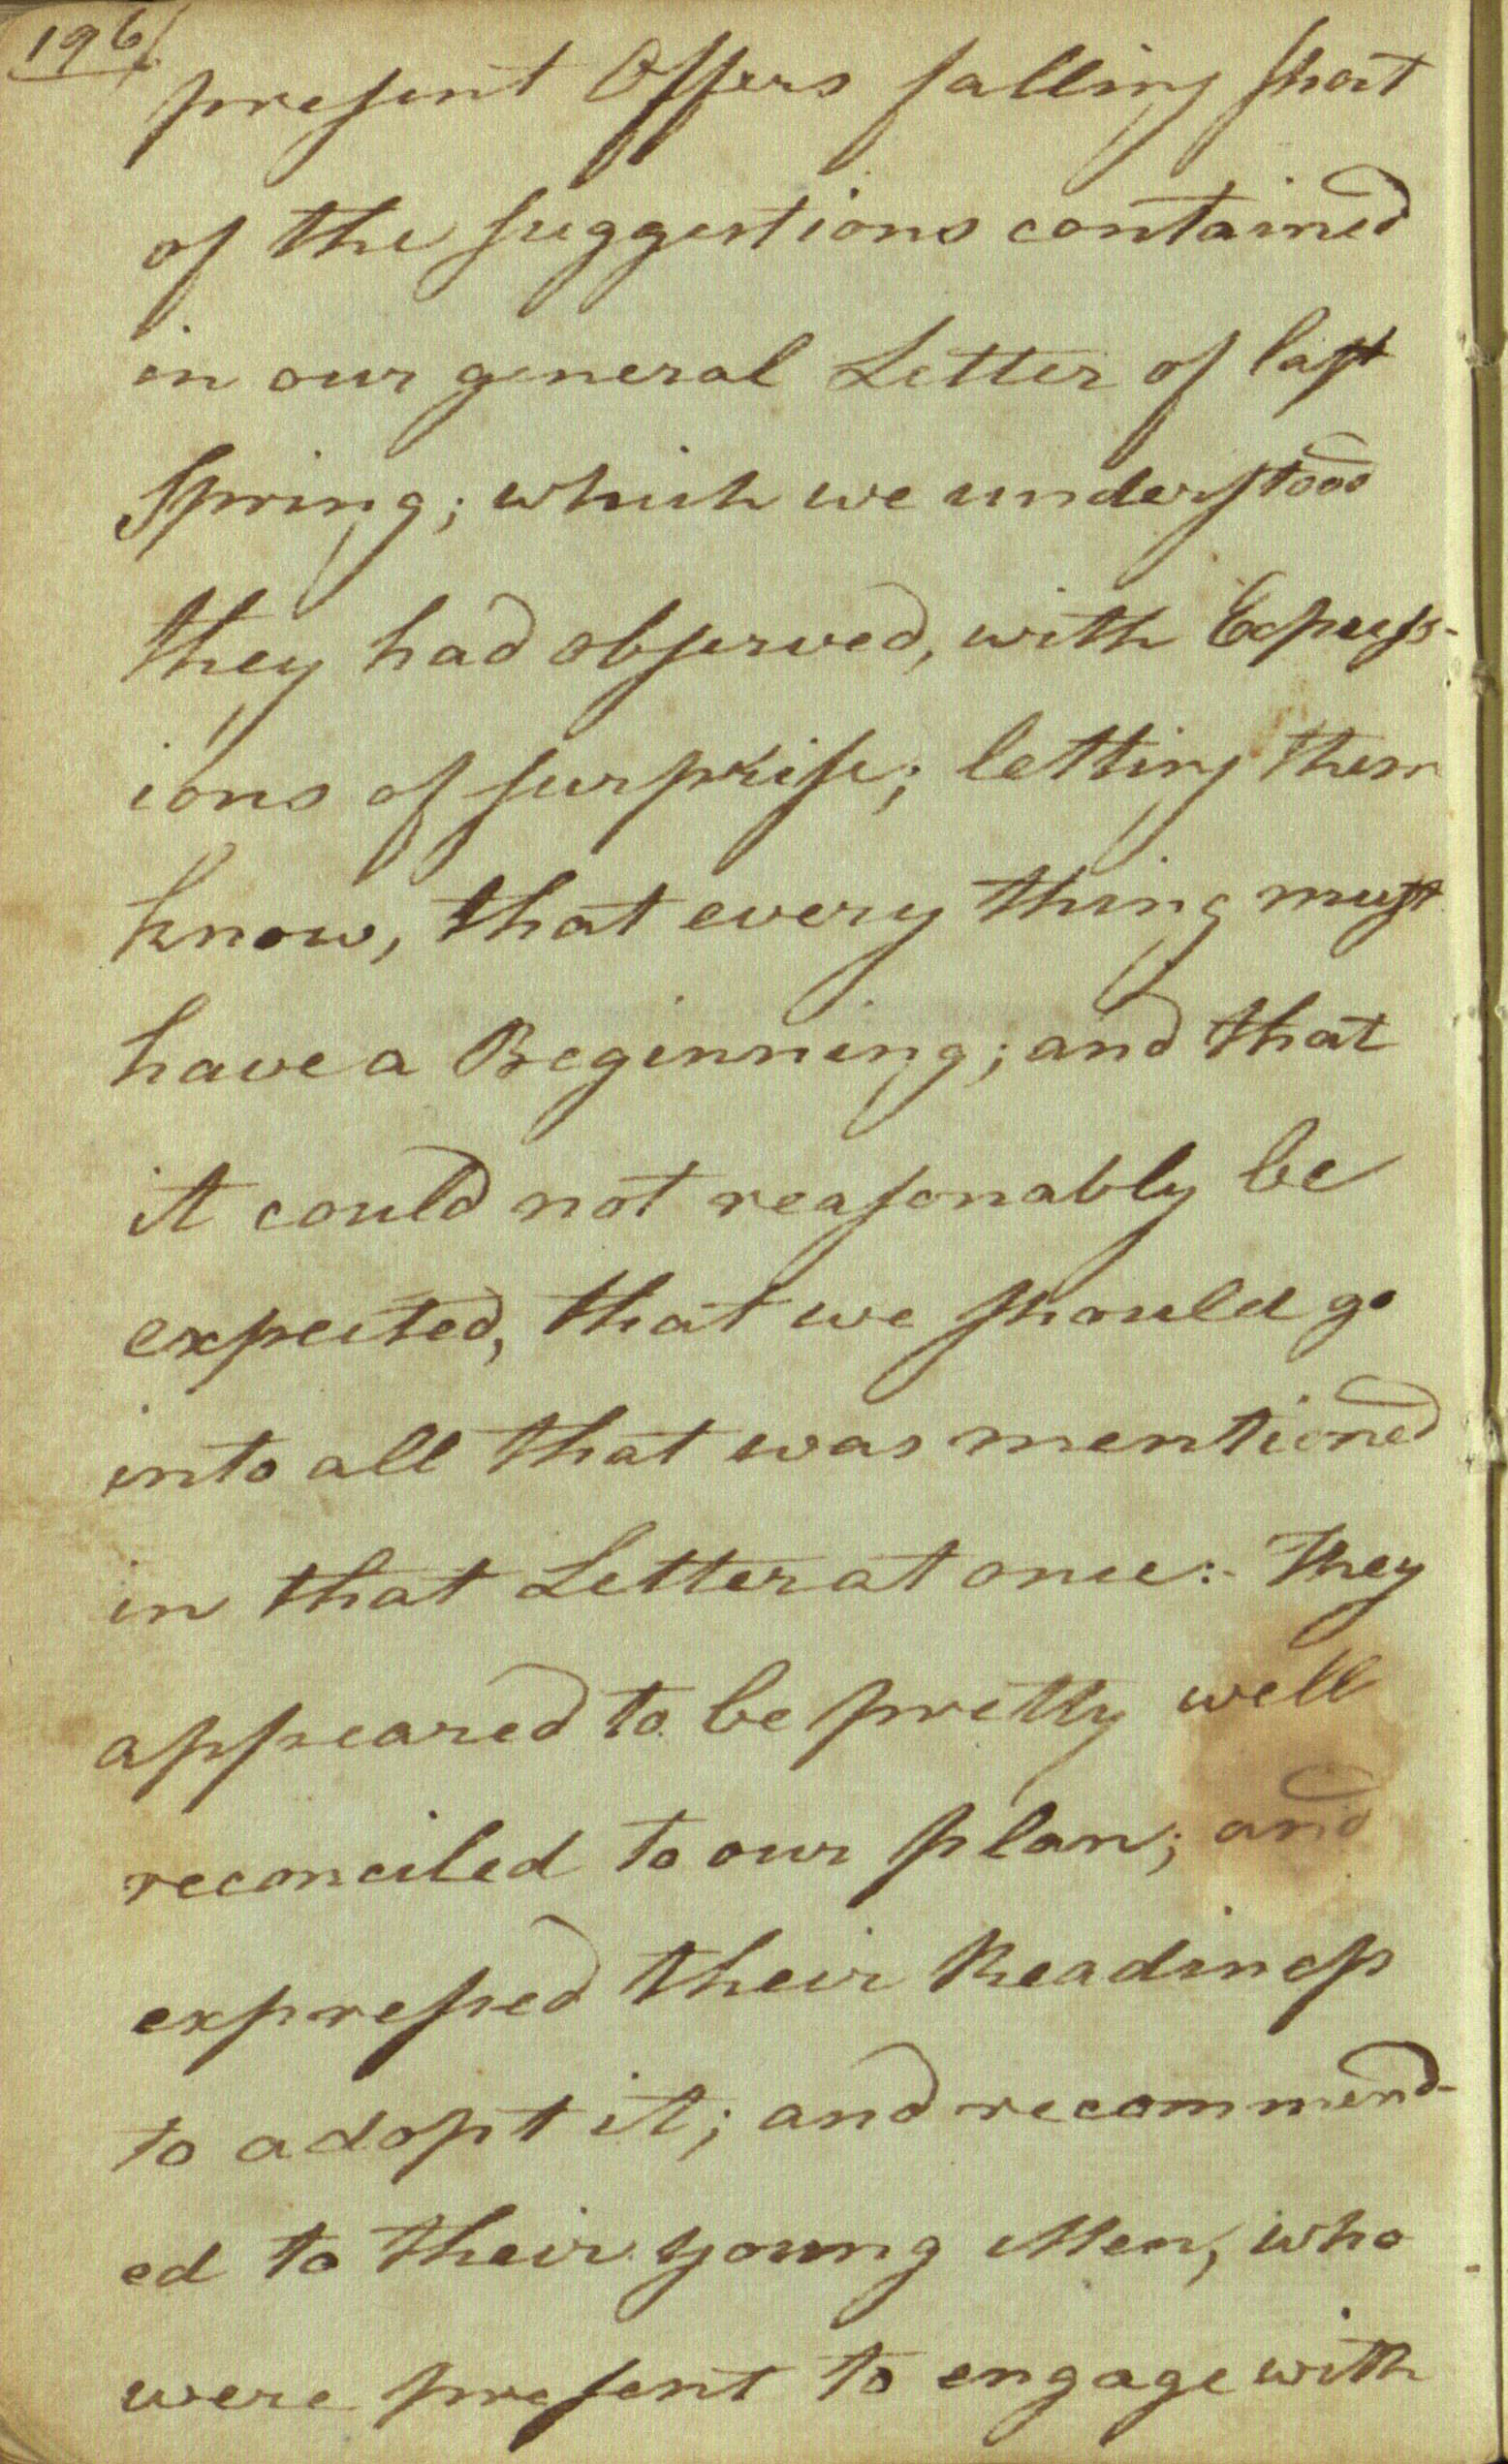 196
present Offers falling short
of the suggestions contained
in our general Letter of last
Spring; which we understood
they had observed, with Express-
ions of surprise; letting them
know, that every thing must
have a Beginning; and that
it could not reasonably be
expected, that we should go
into all that was mentioned
in that Letter at once:- They
appeared to be pretty well
reconciled to our plan; and
expressed their Readiness
to adopt it; and recommend-
ed to their young Men, who
were present to engage with